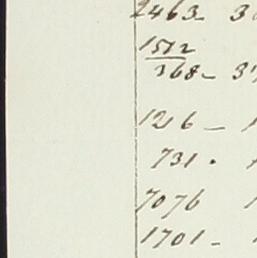 2463 - 3
1512
368 - 3
1216 -
731 .
7076
1701 -